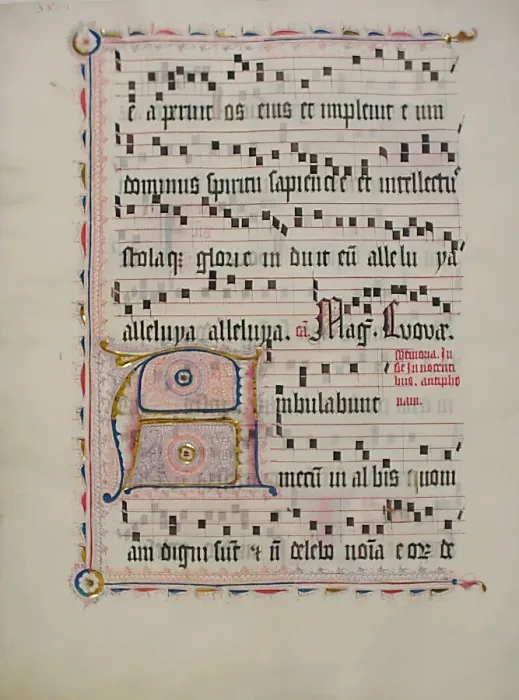 e aperuit os eius et impleuit e um
dominus spiritu sapiencie et intellectu
stola qz glorie in duit eū alle lu ya
alleluya alleluya. ea Mag. Euovae.
memoria. In
Innocenti
bus. antipho
nam.
Ambulabunt
mecū in al bis quoni
am digni sūt & ñ delebo noīa e oꝝ de